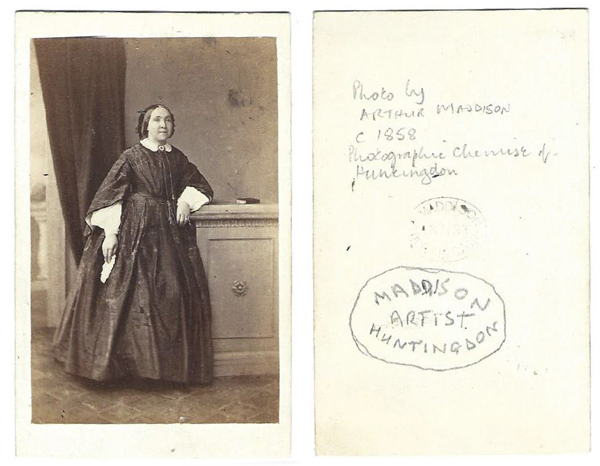 Photo by
ARTHUR MADDISON
c 1858
Photographic Chemise of
Huntingdon
MADDISON
MADDISON
ARTIST
HUNTINGDON